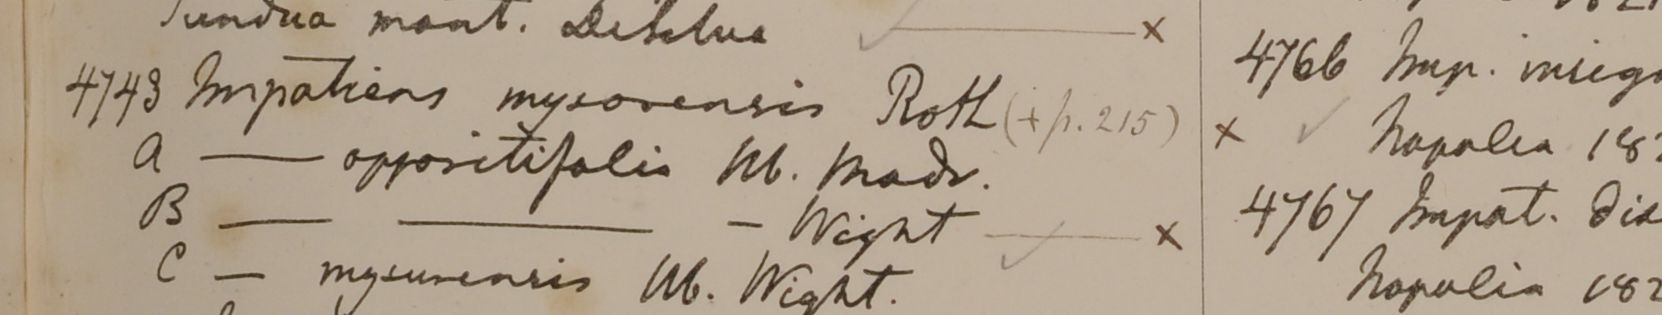 mont.
4743 Impatiens mysorensis Roth (+p. 215)
A — oppositifolia Hb. Madr.
B — — - Wight
C — mysurensis Hb. Wight.
4766 Imp.
Napalia 182
4767 Impat. Dis
Napalia 182